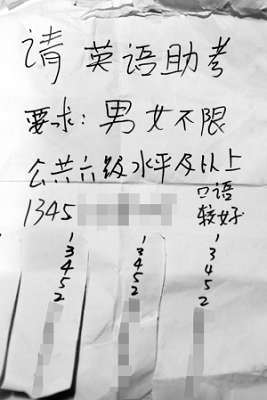 请英语助考
要求：男女不限
公共六级水平及以上
口语
1345
较好
13452
13452
13452